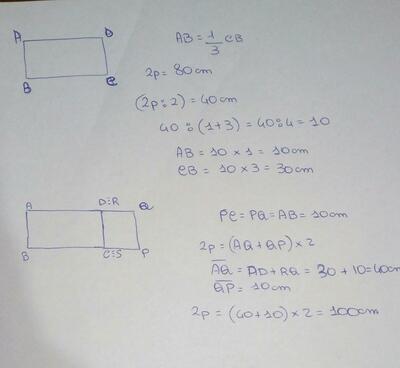 A D
B C
AB = 1/3 CB
2p = 80 cm
(2p : 2) = 40 cm
40 : (1+3) = 40 : 4 = 10
AB = 10 × 1 = 10 cm
CB = 10 × 3 = 30 cm
A D≡R Q
B C≡S P
PC = PQ = AB = 10 cm
2p = (AQ + QP) × 2
AQ = AD + RQ = 30 + 10 = 40 cm
QP = 10 cm
2p = (40 + 10) × 2 = 100 cm